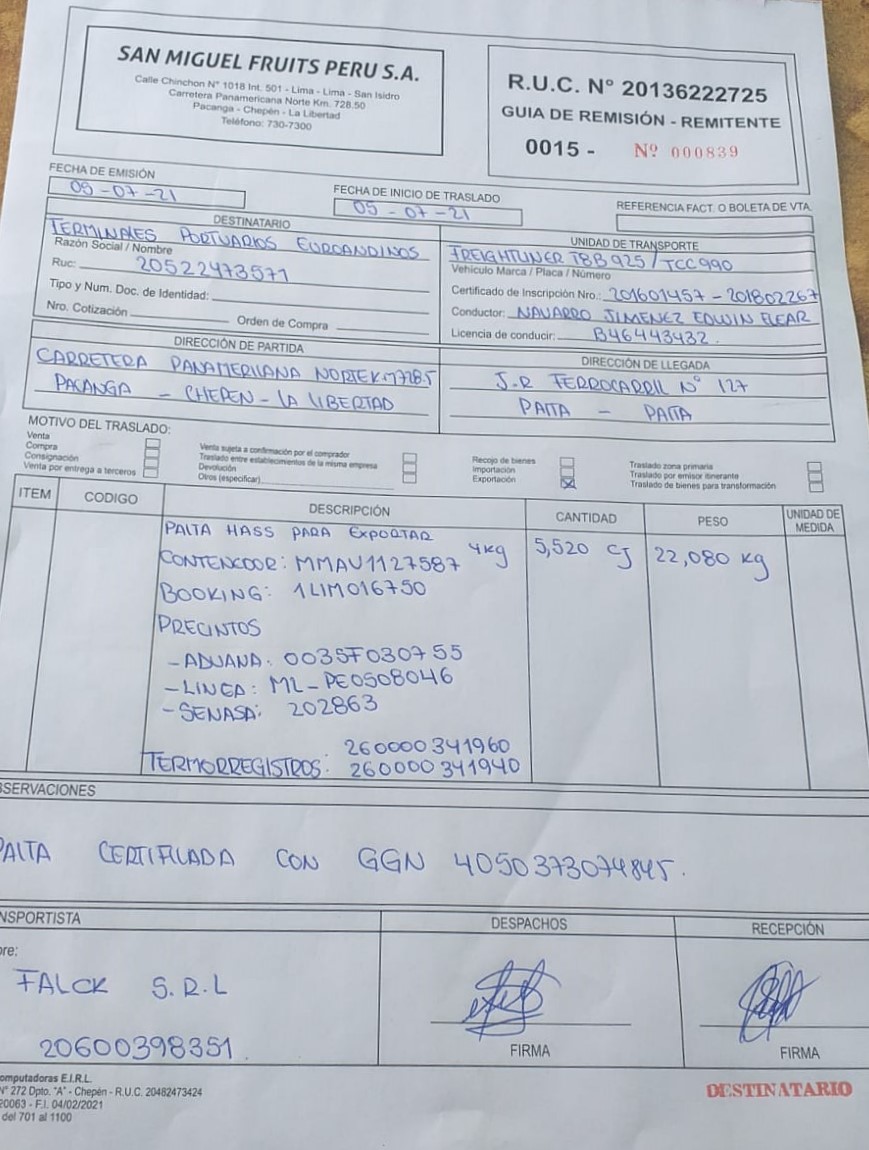 SAN MIGUEL FRUITS PERU S.A.
Calle Chinchon N° 1018 Int. 501 - Lima - Lima - San Isidro
Carretera Panamericana Norte Km. 728.50
Pacanga - Chepén - La Libertad
Teléfono: 730-7300
R.U.C. N° 20136222725
GUIA DE REMISIÓN - REMITENTE
0015 - Nº 000839
FECHA DE EMISIÓN
09-07-21
FECHA DE INICIO DE TRASLADO
09-07-21
REFERENCIA FACT. O BOLETA DE VTA.
DESTINATARIO
TERMINALES PORTUARIOS EUROANDINOS
Razón Social / Nombre
Ruc: 20522473571
Tipo y Num. Doc. de Identidad:
Nro. Cotización Orden de Compra
UNIDAD DE TRANSPORTE
FREIGHTLINER T8B925/TCC990
Vehículo Marca / Placa / Número
Certificado de Inscripción Nro.: 201601457 - 201802267
Conductor: NAVARRO JIMENEZ EDWIN ELEAR
Licencia de conducir: B46443432.
DIRECCIÓN DE PARTIDA
CARRETERA PANAMERICANA NORTE KM728.5
PACANGA - CHEPEN - LA LIBERTAD
DIRECCIÓN DE LLEGADA
J.R FERROCARRIL N° 127
PAITA - PAITA
MOTIVO DEL TRASLADO:
Venta
Compra
Consignación
Venta por entrega a terceros
Venta sujeta a confirmación por el comprador
Traslado entre establecimientos de la misma empresa
Devolución
Otros (especificar)
Recojo de bienes
Importación
Exportación
Traslado zona primaria
Traslado por emisor itinerante
Traslado de bienes para transformación
ITEM CODIGO DESCRIPCIÓN CANTIDAD PESO UNIDAD DE MEDIDA
PALTA HASS PARA EXPORTAR
CONTENEDOR: MMAU1127587 4kg 5,520 CJ 22,080 kg
BOOKING: 1LIM016750
PRECINTOS
- ADUANA: 0035F030755
- LINEA: ML-PE0508046
- SENASA: 202863
260000341960
TERMORREGISTROS: 260000341940
BSERVACIONES
PALTA CERTIFICADA CON GGN 4050373074845.
NSPORTISTA
bre:
FALCK S.R.L
20600398351
DESPACHOS
FIRMA
RECEPCIÓN
FIRMA
omputadoras E.I.R.L.
N° 272 Dpto. "A" - Chepén - R.U.C. 20482473424
20063 - F.I. 04/02/2021
del 701 al 1100
DESTINATARIO